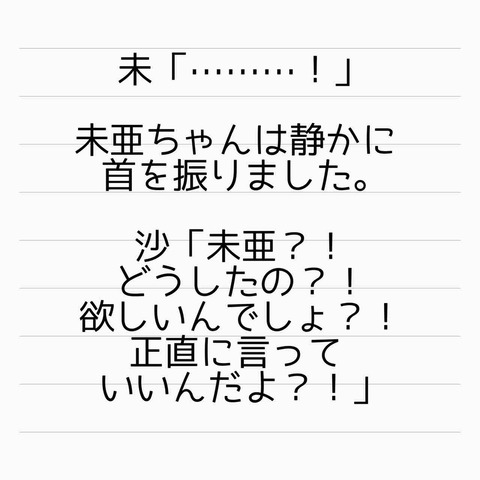 未「………！」
未亜ちゃんは静かに
首を振りました。
沙「未亜？！
どうしたの？！
欲しいんでしょ？！
正直に言って
いいんだよ？！」